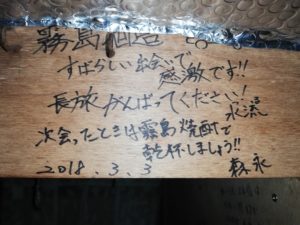 霧島酒造
すばらしい出会いで
感激です!!
長旅がんばってください!
水流
次会ったときは霧島焼酎で
乾杯しましょう!!
2018.3.3 森永